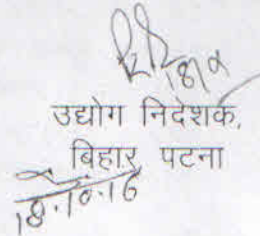 18/10
उद्योग निदेशक,
बिहार पटना
18.10.16